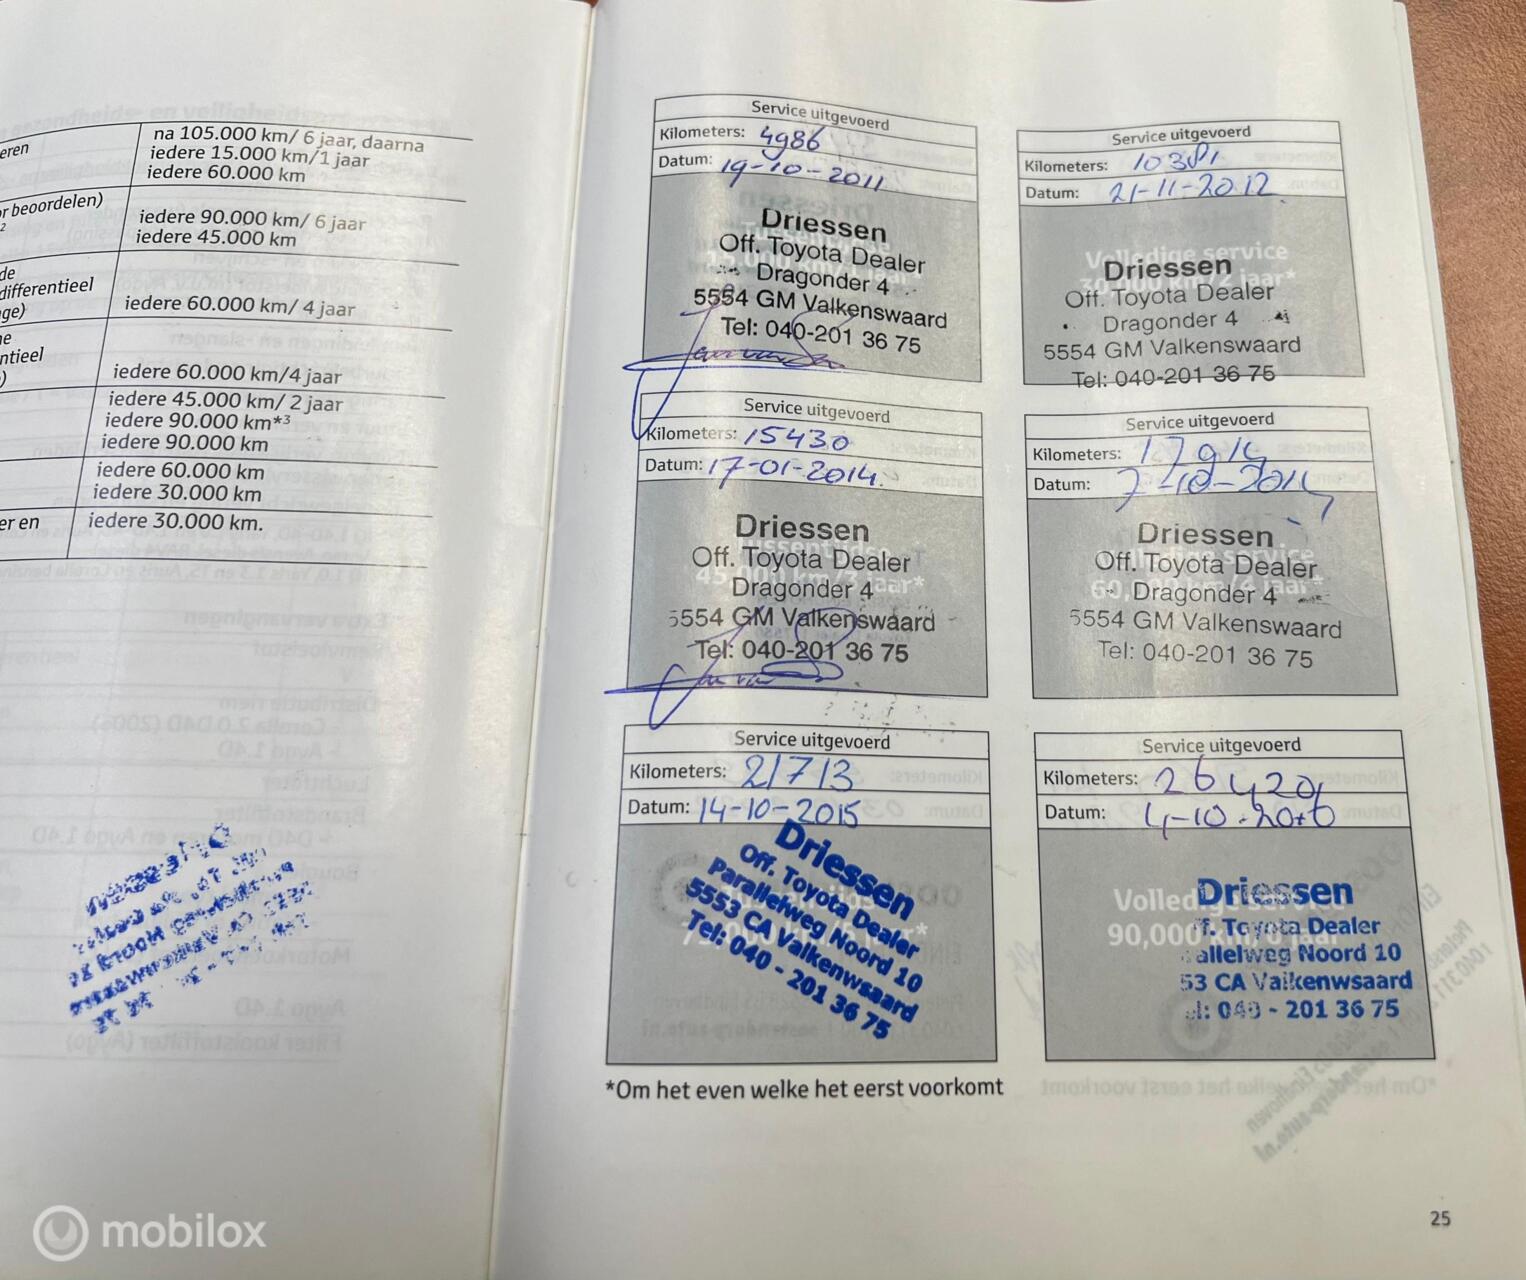 eren
na 105.000 km/ 6 jaar, daarna
iedere 15.000 km/1 jaar
iedere 60.000 km
r beoordelen)
2
iedere 90.000 km/ 6 jaar
iedere 45.000 km
de
differentieel
ge)
iedere 60.000 km/ 4 jaar
ne
ntieel
)
iedere 60.000 km/4 jaar
iedere 45.000 km/ 2 jaar
iedere 90.000 km*3
iedere 90.000 km
iedere 60.000 km
iedere 30.000 km
er en
iedere 30.000 km.
Service uitgevoerd
Kilometers: 4986
Datum: 19-10-2011
Driessen
Off. Toyota Dealer
Dragonder 4
5554 GM Valkenswaard
Tel: 040-201 36 75
Service uitgevoerd
Kilometers: 10381
Datum: 21-11-2012
Volledige service
30,000 km/2 jaar*
Driessen
Off. Toyota Dealer
Dragonder 4
5554 GM Valkenswaard
Tel: 040-201 36 75
Service uitgevoerd
Kilometers: 15430
Datum: 17-01-2014
45,000 km/3 jaar*
Driessen
Off. Toyota Dealer
Dragonder 4
5554 GM Valkenswaard
Tel: 040-201 36 75
Service uitgevoerd
Kilometers: 17914
Datum: 7-10-2014
Volledige service
60,000 km/4 jaar*
Driessen
Off. Toyota Dealer
Dragonder 4
5554 GM Valkenswaard
Tel: 040-201 36 75
Service uitgevoerd
Kilometers: 21713
Datum: 14-10-2015
Driessen
Off. Toyota Dealer
Parallelweg Noord 10
5553 CA Valkenwsaard
Tel: 040 - 201 36 75
Service uitgevoerd
Kilometers: 26420
Datum: 4-10-2016
Volledige
90,000 km/6 jaar
Driessen
ff. Toyota Dealer
allelweg Noord 10
53 CA Valkenwsaard
el: 040 - 201 36 75
*Om het even welke het eerst voorkomt
25
mobilox